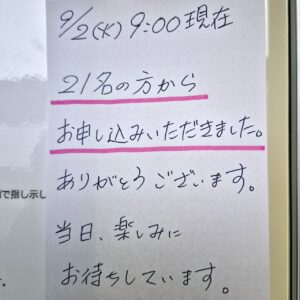 9/2(火)9:00現在
21名の方から
お申し込みいただきました。
ありがとうございます。
当日、楽しみに
お待ちしています。
で指し示し